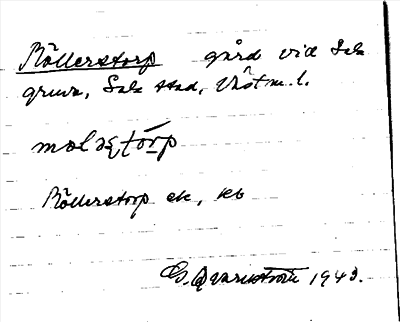 Möllerstorp gård vid Sala
gruva, Sala stad, Västm. l.
Möllerstorp ek, kb
G. Qvarnström 1943.